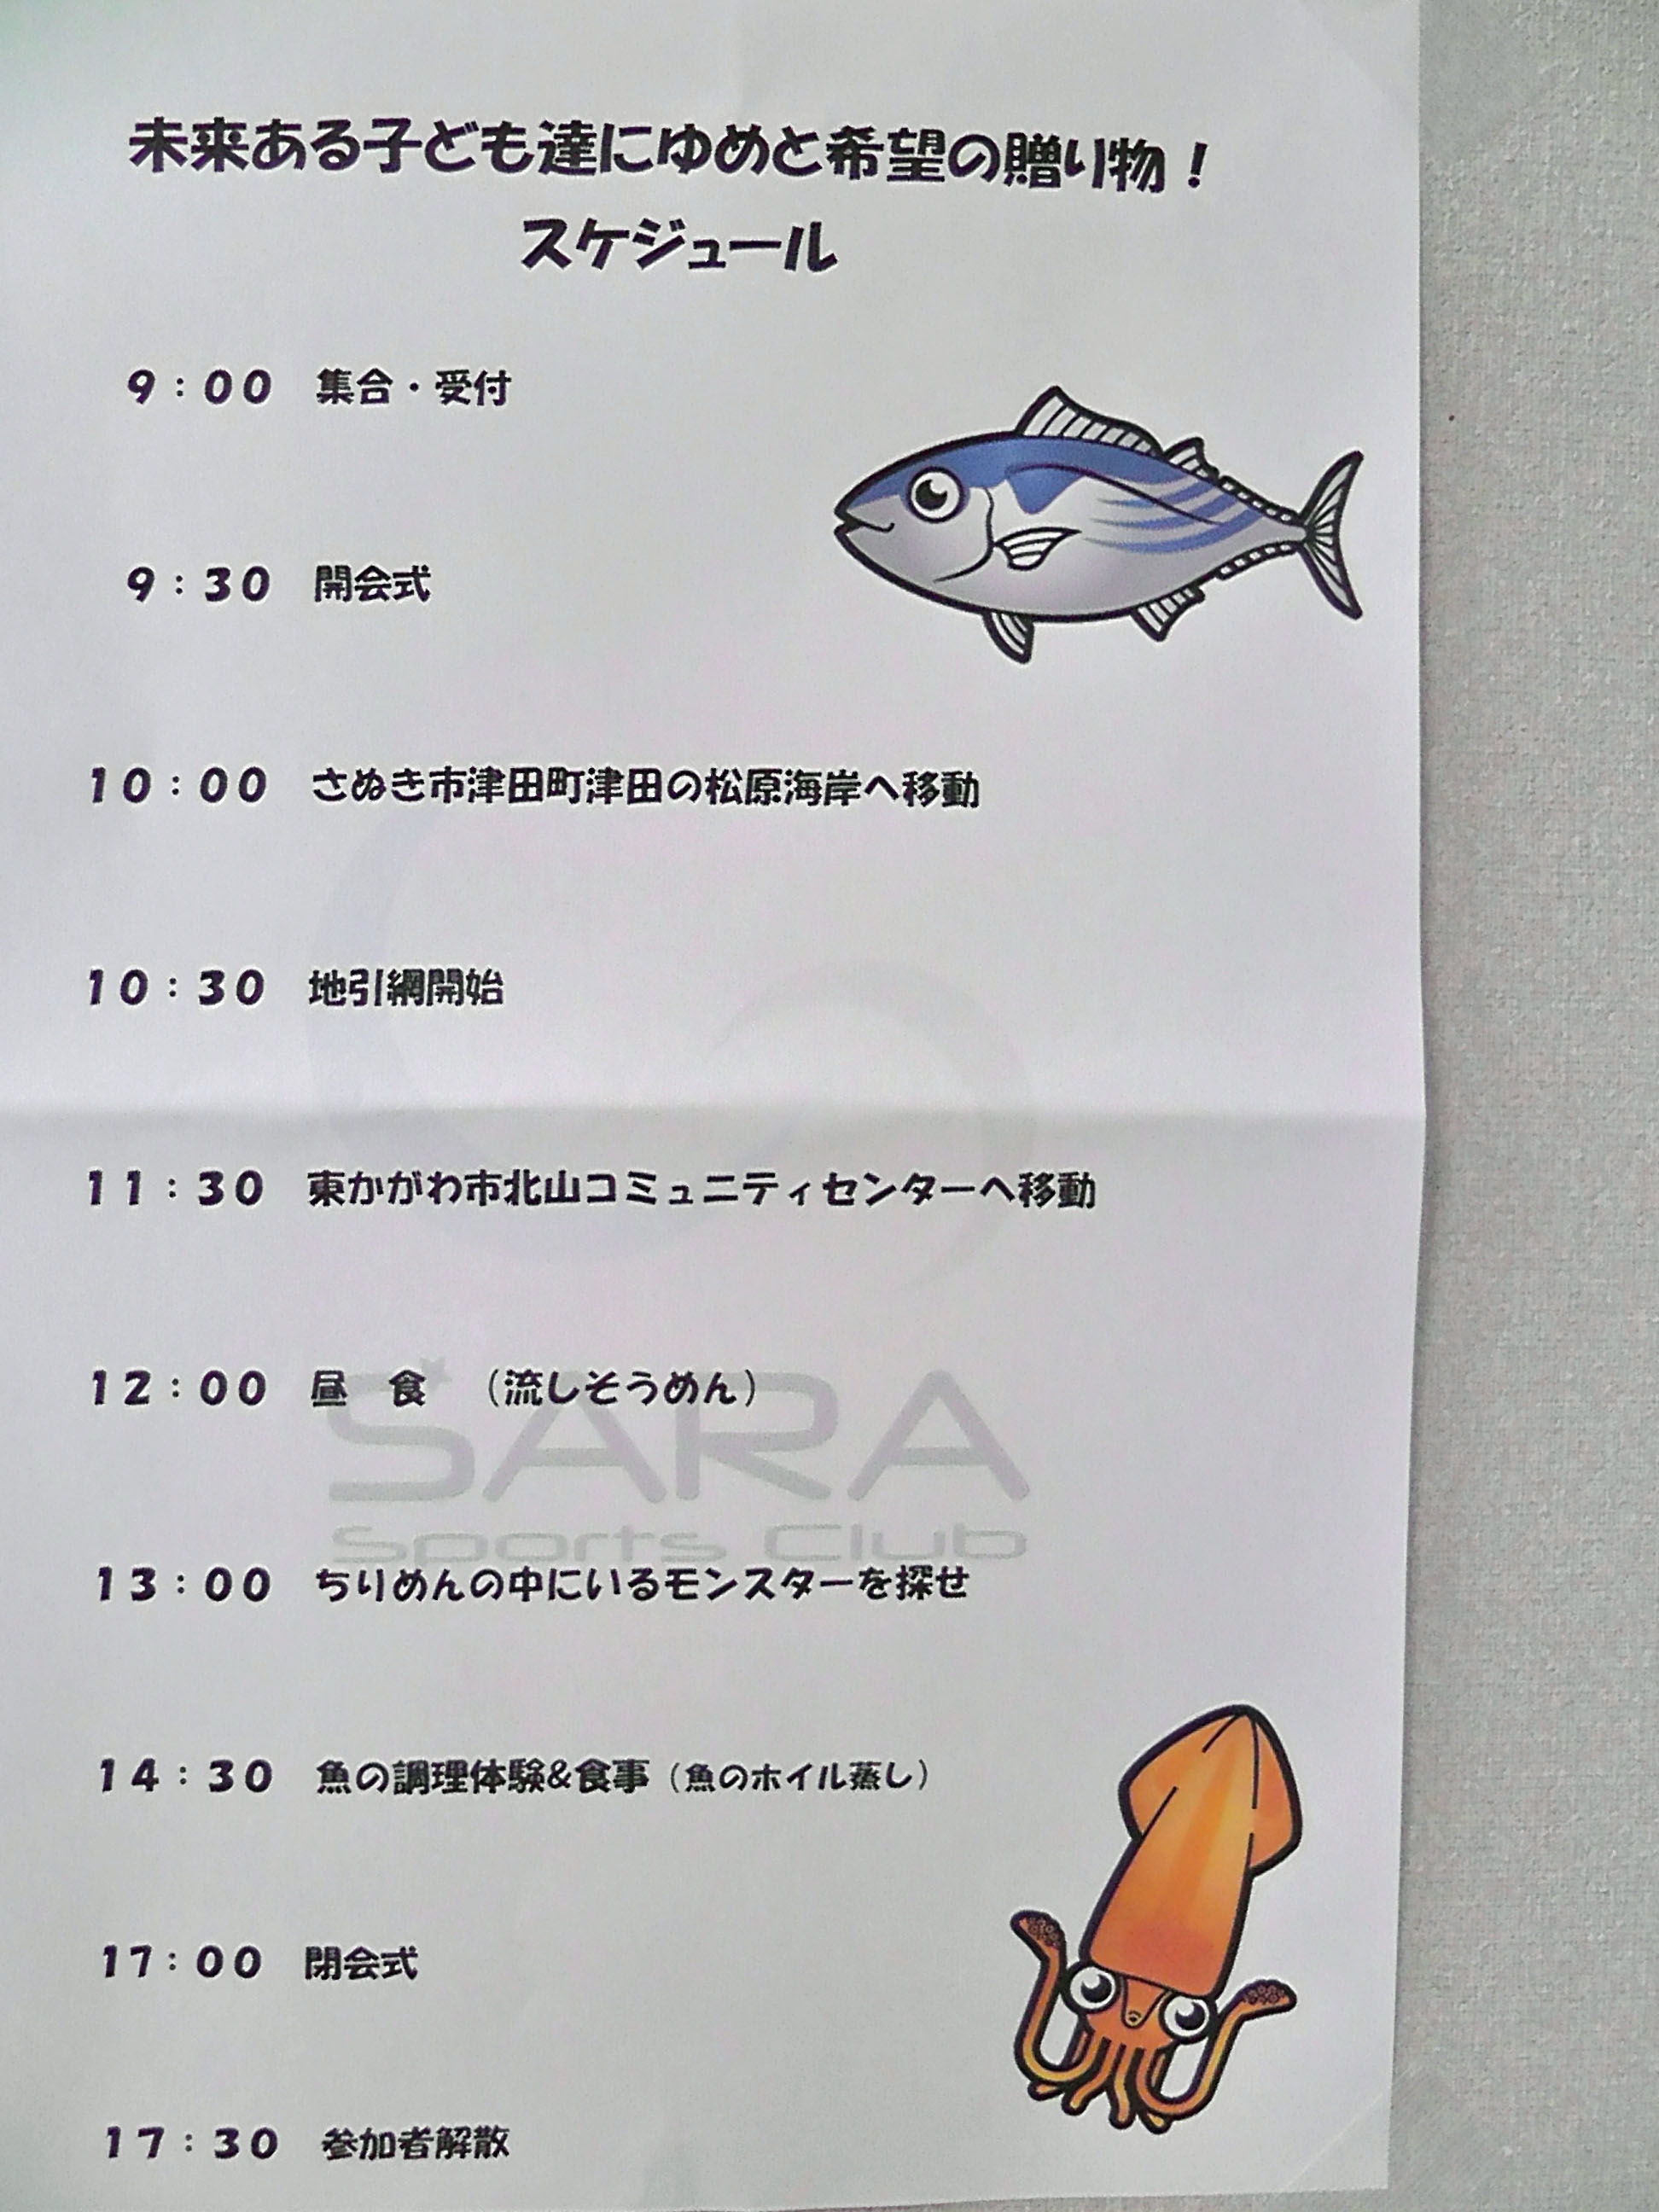 未来ある子ども達にゆめと希望の贈り物！
スケジュール
９：００　集合・受付
９：３０　開会式
１０：００　さぬき市津田町津田の松原海岸へ移動
１０：３０　地引網開始
１１：３０　東かがわ市北山コミュニティセンターへ移動
１２：００　昼　食　（流しそうめん）
SARA
Sports Club
１３：００　ちりめんの中にいるモンスターを探せ
１４：３０　魚の調理体験&食事（魚のホイル蒸し）
１７：００　閉会式
１７：３０　参加者解散